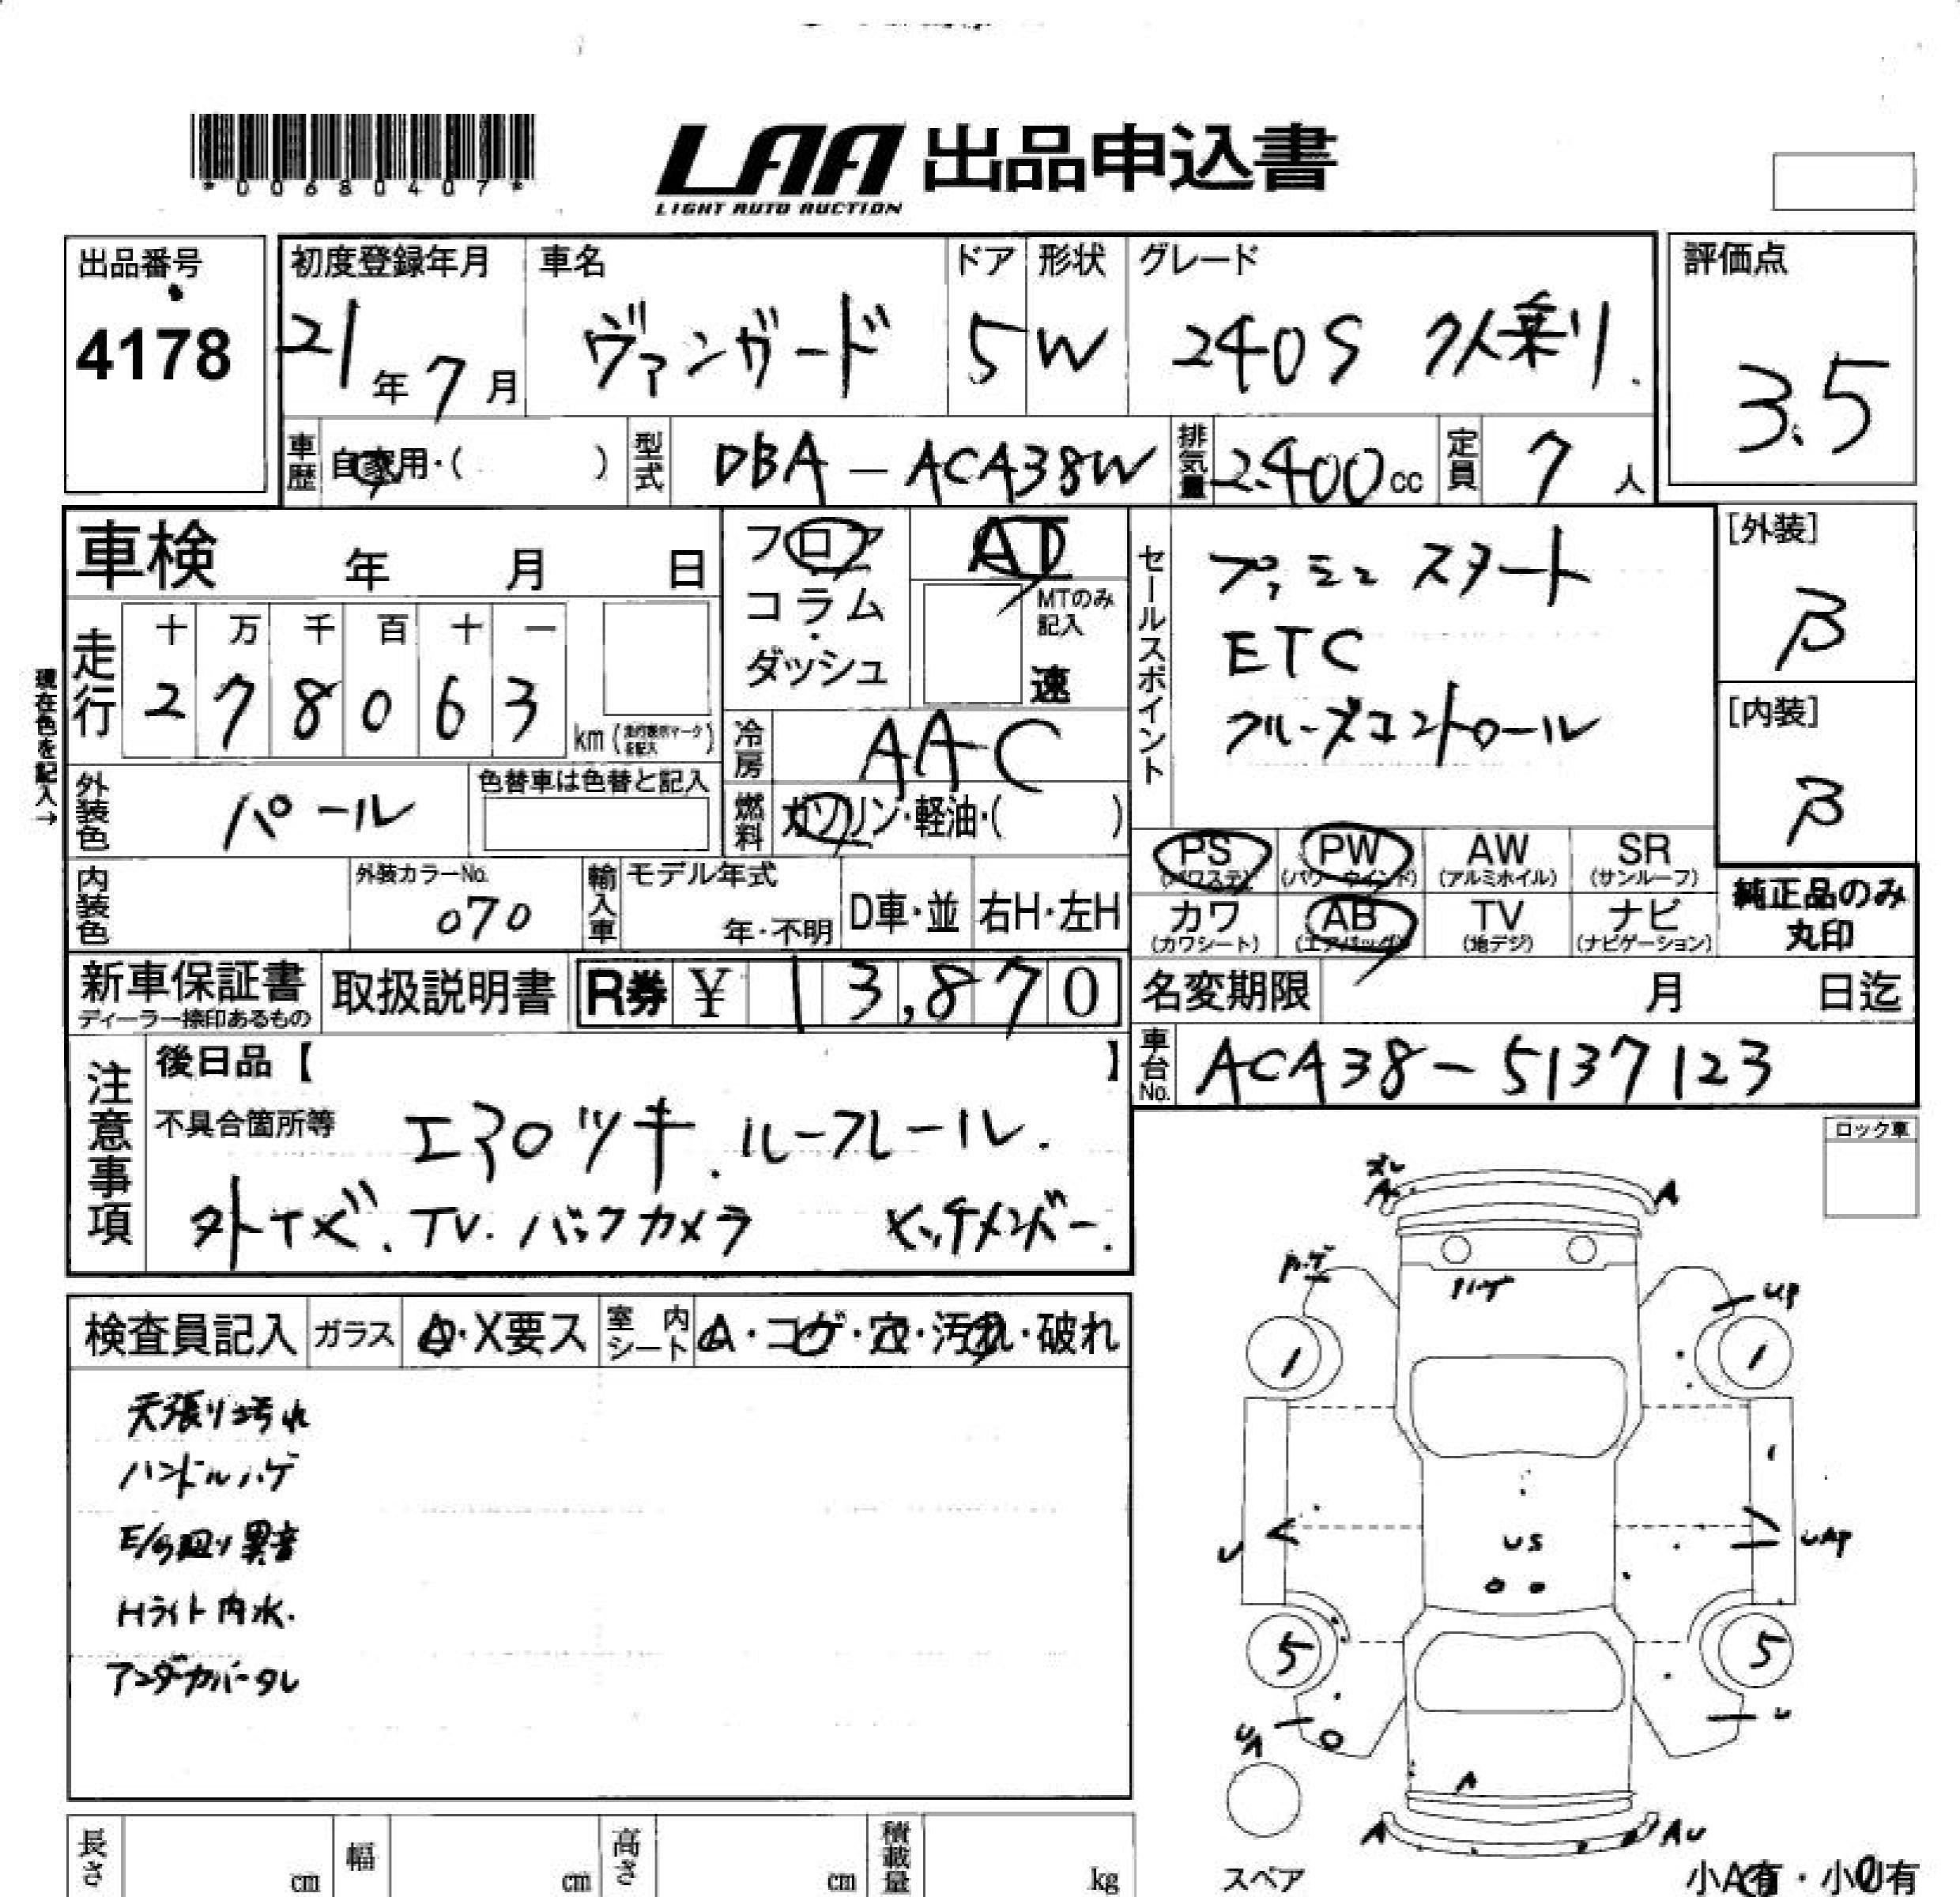 *00680407*
LAA 出品申込書
LIGHT AUTO AUCTION
出品番号
4178
初度登録年月 車名 ドア 形状 グレード
21年7月 ヴァンガード 5 W 240S 7人乗り
評価点
3.5
車歴 自家用・( ) 型式 DBA-ACA38W 排気量 2400cc 定員 7人
車検 年 月 日
フロア コラム・ダッシュ
AT
MTのみ記入
速
走行 十 万 千 百 十 一
2 7 8 0 6 3 km
現在色を記入→
冷房 AAC
燃料 ガソリン・軽油・( )
外装色 パール
色替車は色替と記入
内装色
外装カラーNo.
070
輸入車 モデル年式
年・不明 D車・並 右H・左H
セールスポイント
プッシュスタート
ETC
クルーズコントロール
[外装]
B
[内装]
B
PS (パワステ) PW (パワーウインド) AW (アルミホイル) SR (サンルーフ)
カワ (カワシート) AB (エアバッグ) TV (地デジ) ナビ (ナビゲーション)
純正品のみ
丸印
新車保証書
ディーラー捺印あるもの
取扱説明書 R券 ¥ 13,870
名変期限 月 日迄
車台No. ACA38-5137123
注意事項
後日品【 】
不具合箇所等 エアロツキ.ルーフレール.
外ナビ.TV.バックカメラ ヒッチメンバー.
ロック車
検査員記入 ガラス A・X要ス 室内シート A・コゲ・穴・汚れ・破れ
天張り汚れ
ハンドルハゲ
E/G廻り異音
Hライト内水.
アンダーカバータレ
A A
ハゲ
ハゲ
UP
1 1
U
US
UAP
5 5
UA
U
A
A AU
スペア
小A有・小U有
長さ cm 幅 cm 高さ cm 積載量 kg